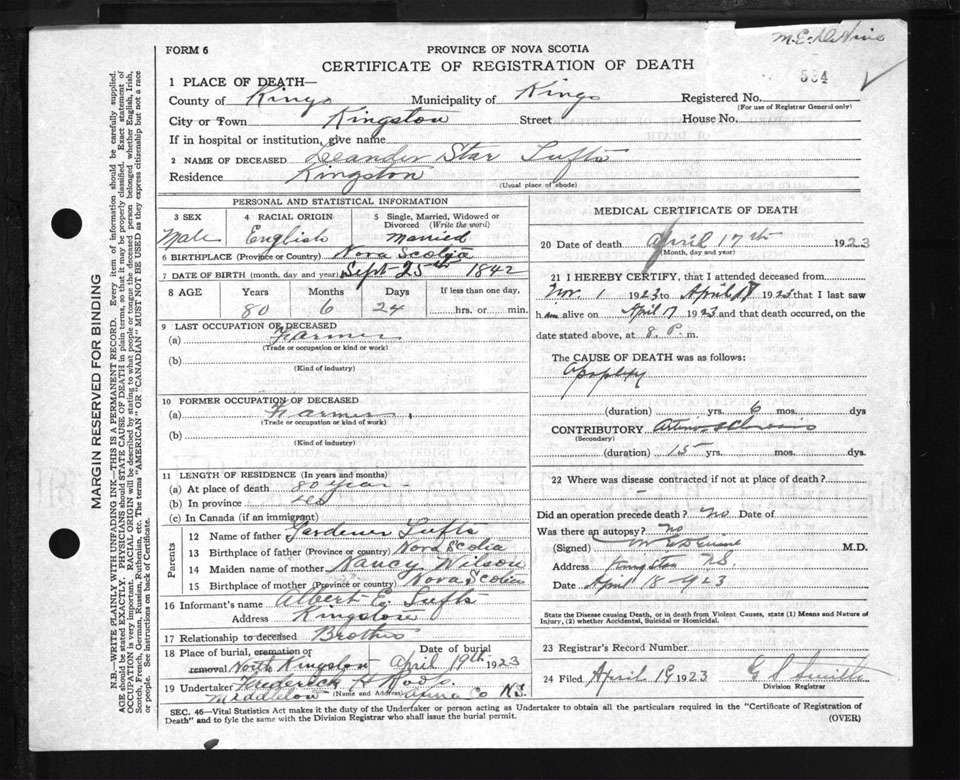 594
FORM 6
PROVINCE OF NOVA SCOTIA
CERTIFICATE OF REGISTRATION OF DEATH
1 PLACE OF DEATH—
County of Kings Municipality of Kings Registered No.
(For use of Registrar General only)
City or Town Kingston Street House No.
If in hospital or institution, give name
2 NAME OF DECEASED Leander Star Tufts
Residence Kingston
(Usual place of abode)
PERSONAL AND STATISTICAL INFORMATION
3 SEX 4 RACIAL ORIGIN 5 Single, Married, Widowed or
Divorced (Write the word)
Male English Married
6 BIRTHPLACE (Province or Country) Nova Scotia
7 DATE OF BIRTH (month, day and year) Sept-25th 1842
8 AGE Years Months Days If less than one day,
80 6 24 hrs. or min.
9 LAST OCCUPATION OF DECEASED
(a) Farmer
(Trade or occupation or kind or work)
(b)
(Kind of industry)
10 FORMER OCCUPATION OF DECEASED
(a) Farmer
(Trade or occupation or kind of work)
(b)
(Kind of industry)
11 LENGTH OF RESIDENCE (In years and months)
(a) At place of death 80 year
(b) In province
(c) In Canada (if an immigrant)
Parents
12 Name of father Gardener Tufts
13 Birthplace of father (Province or country) Nova Scotia
14 Maiden name of mother Nancy Wilson
15 Birthplace of mother (Province or country) Nova Scotia
16 Informant's name Albert E. Tufts
Address Kingston
17 Relationship to deceased Brother
18 Place of burial, cremation or Date of burial
removal North Kingston April 19th 1923
19 Undertaker Frederick H
(Name and Address) Anna Co N.S.
MEDICAL CERTIFICATE OF DEATH
20 Date of death April 17th 1923
(Month, day and year)
21 I HEREBY CERTIFY, that I attended deceased from
Nov. 1 1923 to April 1923 that I last saw
h im alive on April 17 1923 and that death occurred, on the
date stated above, at 8 P. m.
The CAUSE OF DEATH was as follows:
Apoplexy
(duration) yrs. 6 mos. dys
CONTRIBUTORY
(Secondary)
(duration) 15 yrs. mos. dys
22 Where was disease contracted if not at place of death?
Did an operation precede death? No Date of
Was there an autopsy? No
(Signed) M.D.
Address Kingston N.S.
Date April 18 1923
State the Disease causing Death, or in death from Violent Causes, state (1) Means and Nature of
Injury, (2) whether Accidental, Suicidal or Homicidal.
23 Registrar's Record Number
24 Filed April 19 1923
Division Registrar
SEC. 46—Vital Statistics Act makes it the duty of the Undertaker or person acting as Undertaker to obtain all the particulars required in the "Certificate of Registration of
Death" and to fyle the same with the Division Registrar who shall issue the burial permit.
(OVER)
MARGIN RESERVED FOR BINDING
N.B.—WRITE PLAINLY WITH UNFADING INK—THIS IS A PERMANENT RECORD. Every item of information should be carefully supplied.
AGE should be stated EXACTLY. PHYSICIANS should STATE CAUSE OF DEATH in plain terms, so that it may be properly classified. Exact statement of
OCCUPATION is very important. RACIAL ORIGIN will be described by stating to what people or tongue the deceased person belonged whether English, Irish,
Scotch, French, German, Russian, Ruthenian, etc. The terms "AMERICAN" OR "CANADIAN" MUST NOT BE USED as they express citizenship but not a race
or people. See instructions on back of Certificate.